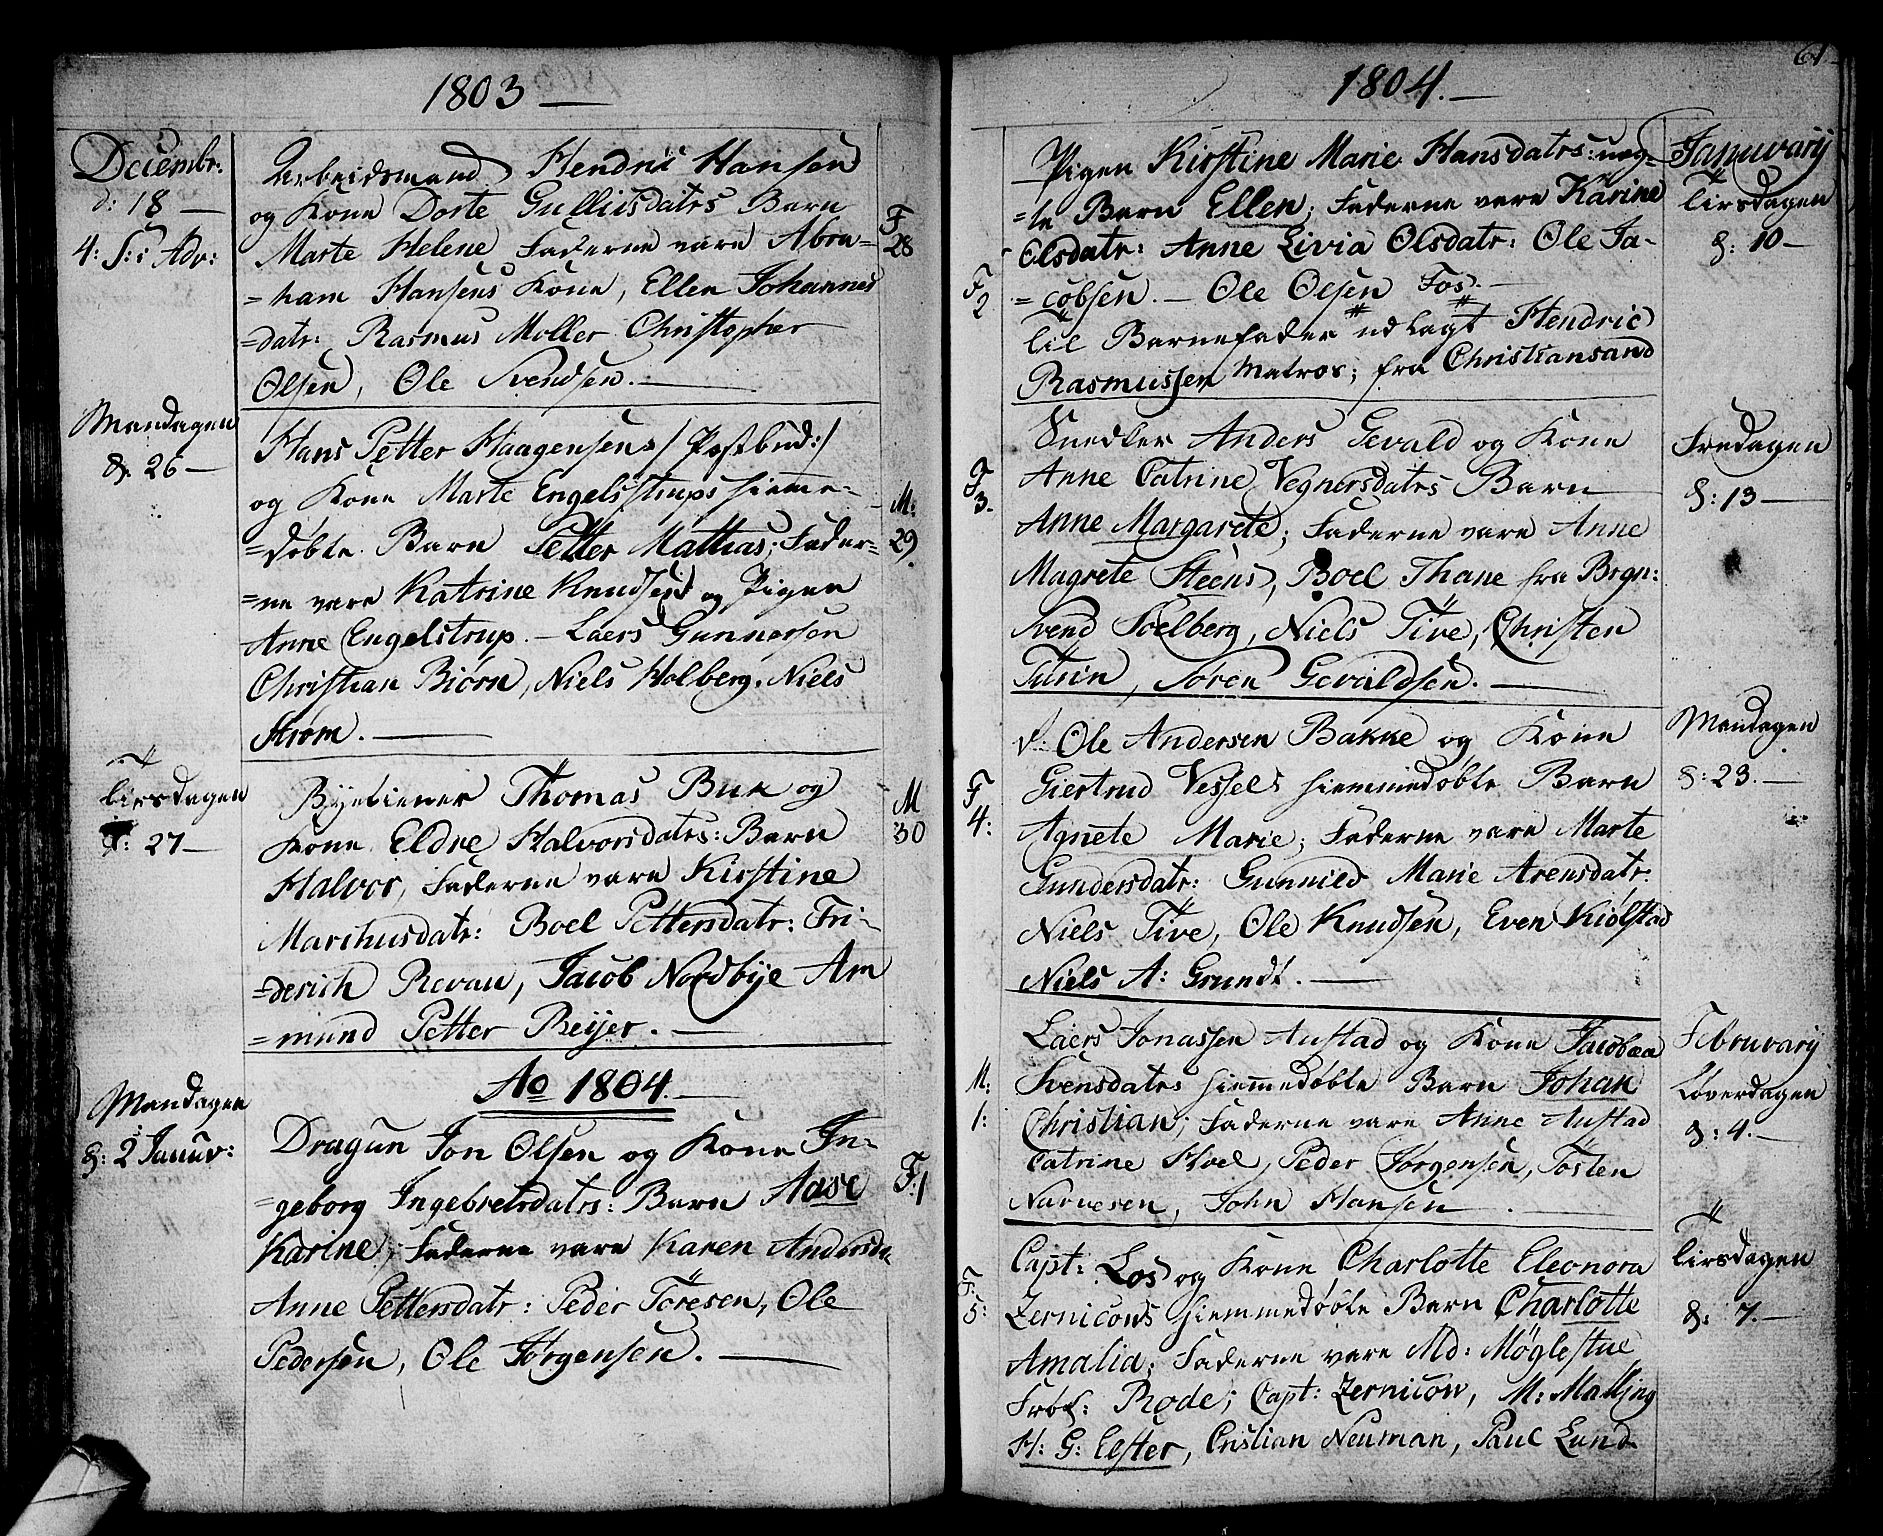 1803 —
Decembr:
d: 18 —
4: S: i Adv:
Arbeidsmand Hendric Hansen
og Kone Dorte Gulliksdatrs Barn
Marte Helene Faderne vare Abra-
=ham Hansens Kone, Ellen Johannes
datr: Rasmus Moller Christopher
Olsen, Ole Svendsen. —
F
28
Mandagen
d: 26 —
Hans Petter Haagensens / Postbud: /
og Kone Marte Engelstrups hieme-
=døbte Barn Petter Mathias; Fader-
=ne vare Katrine Knudsen og Pigen
Anne Engelstrup. — Laers Gunnersen
Christian Biørn, Niels Holberg. Niels
Strøm. —
M:
29
Tirsdagen
d: 27 —
Bytiener Thomas Buk og
Kone Eldre Halvorsdatrs: Barn
Halvor, Faderne vare Kirstine
Marchusdatr: Boel Pettersdatr: Fri-
=derich Revau, Jacob Nordbye Am
=mund Petter Beijer. —
M
30
Ao 1804. —
Mandagen
d: 2 Januv:
Dragun Jon Olsen og Kone In-
=geborg Ingebretsdatrs: Barn Aase
Karine; Faderne vare Karen Andersda.
Anne Pettersdatr: Peder Töresen, Ole
Pedersen, Ole Jørgensen. —
F: 1
1804. —
61
Januvarij
Tirsdagen
d: 10 —
Pigen Kirstine Marie Hansdatrs: uæg-
=te Barn Ellen; Faderne vare Karine
Olsdatr: Anne Livia Olsdatr: Ole Ja-
=cobsen. — Ole Olsen Fos. —
Til Barnefader udlagt Hendric
Rasmussen Matros; fra Christiansand
F
2
Fredagen
d: 13 —
Snedker Anders Gevald og Kone
Anne Catrine Vegnersdatrs Barn
Anne Margarete; Faderne vare Anne
Magrete Steens, Boel Thane fra Brgn:
Svend Solberg, Niels Tive, Christen
Tutein, Søren Gevaldsen. —
F
3.
Mandagen
d: 23. —
Ole Andersen Bakke og Kone
Giertrud Vessels hiemmedøbte Barn
Agnete Marie; Faderne vare Marte
Gundersdatr: Gunnild Marie Arensdatr:
Niels Tive, Ole Knudsen, Even Kiølstad
Niels A: Grundt. —
F
4:
Februvarij
Løverdagen
d: 4. —
Laers Jonassen Austad og Kone Jacobæa
Svensdatrs hiemmedøbte Barn Johan
Christian; Faderne vare Anne Austad
Catrine Hoel, Peder Jørgensen, Tösten
Narvesen, John Hansen —
M:
1:
Tirsdagen
d: 7. —
Capt: Los og Kone Charlotte Eleonora
Zernicows hiemmedøbte Barn Charlotte
Amalia; Faderne vare Md: Møglestue
Frøk: Rode; Capt: Zernicow, M: Malling
H: G: Elster, Cristian Neuman, Paul Lund
F:
5: